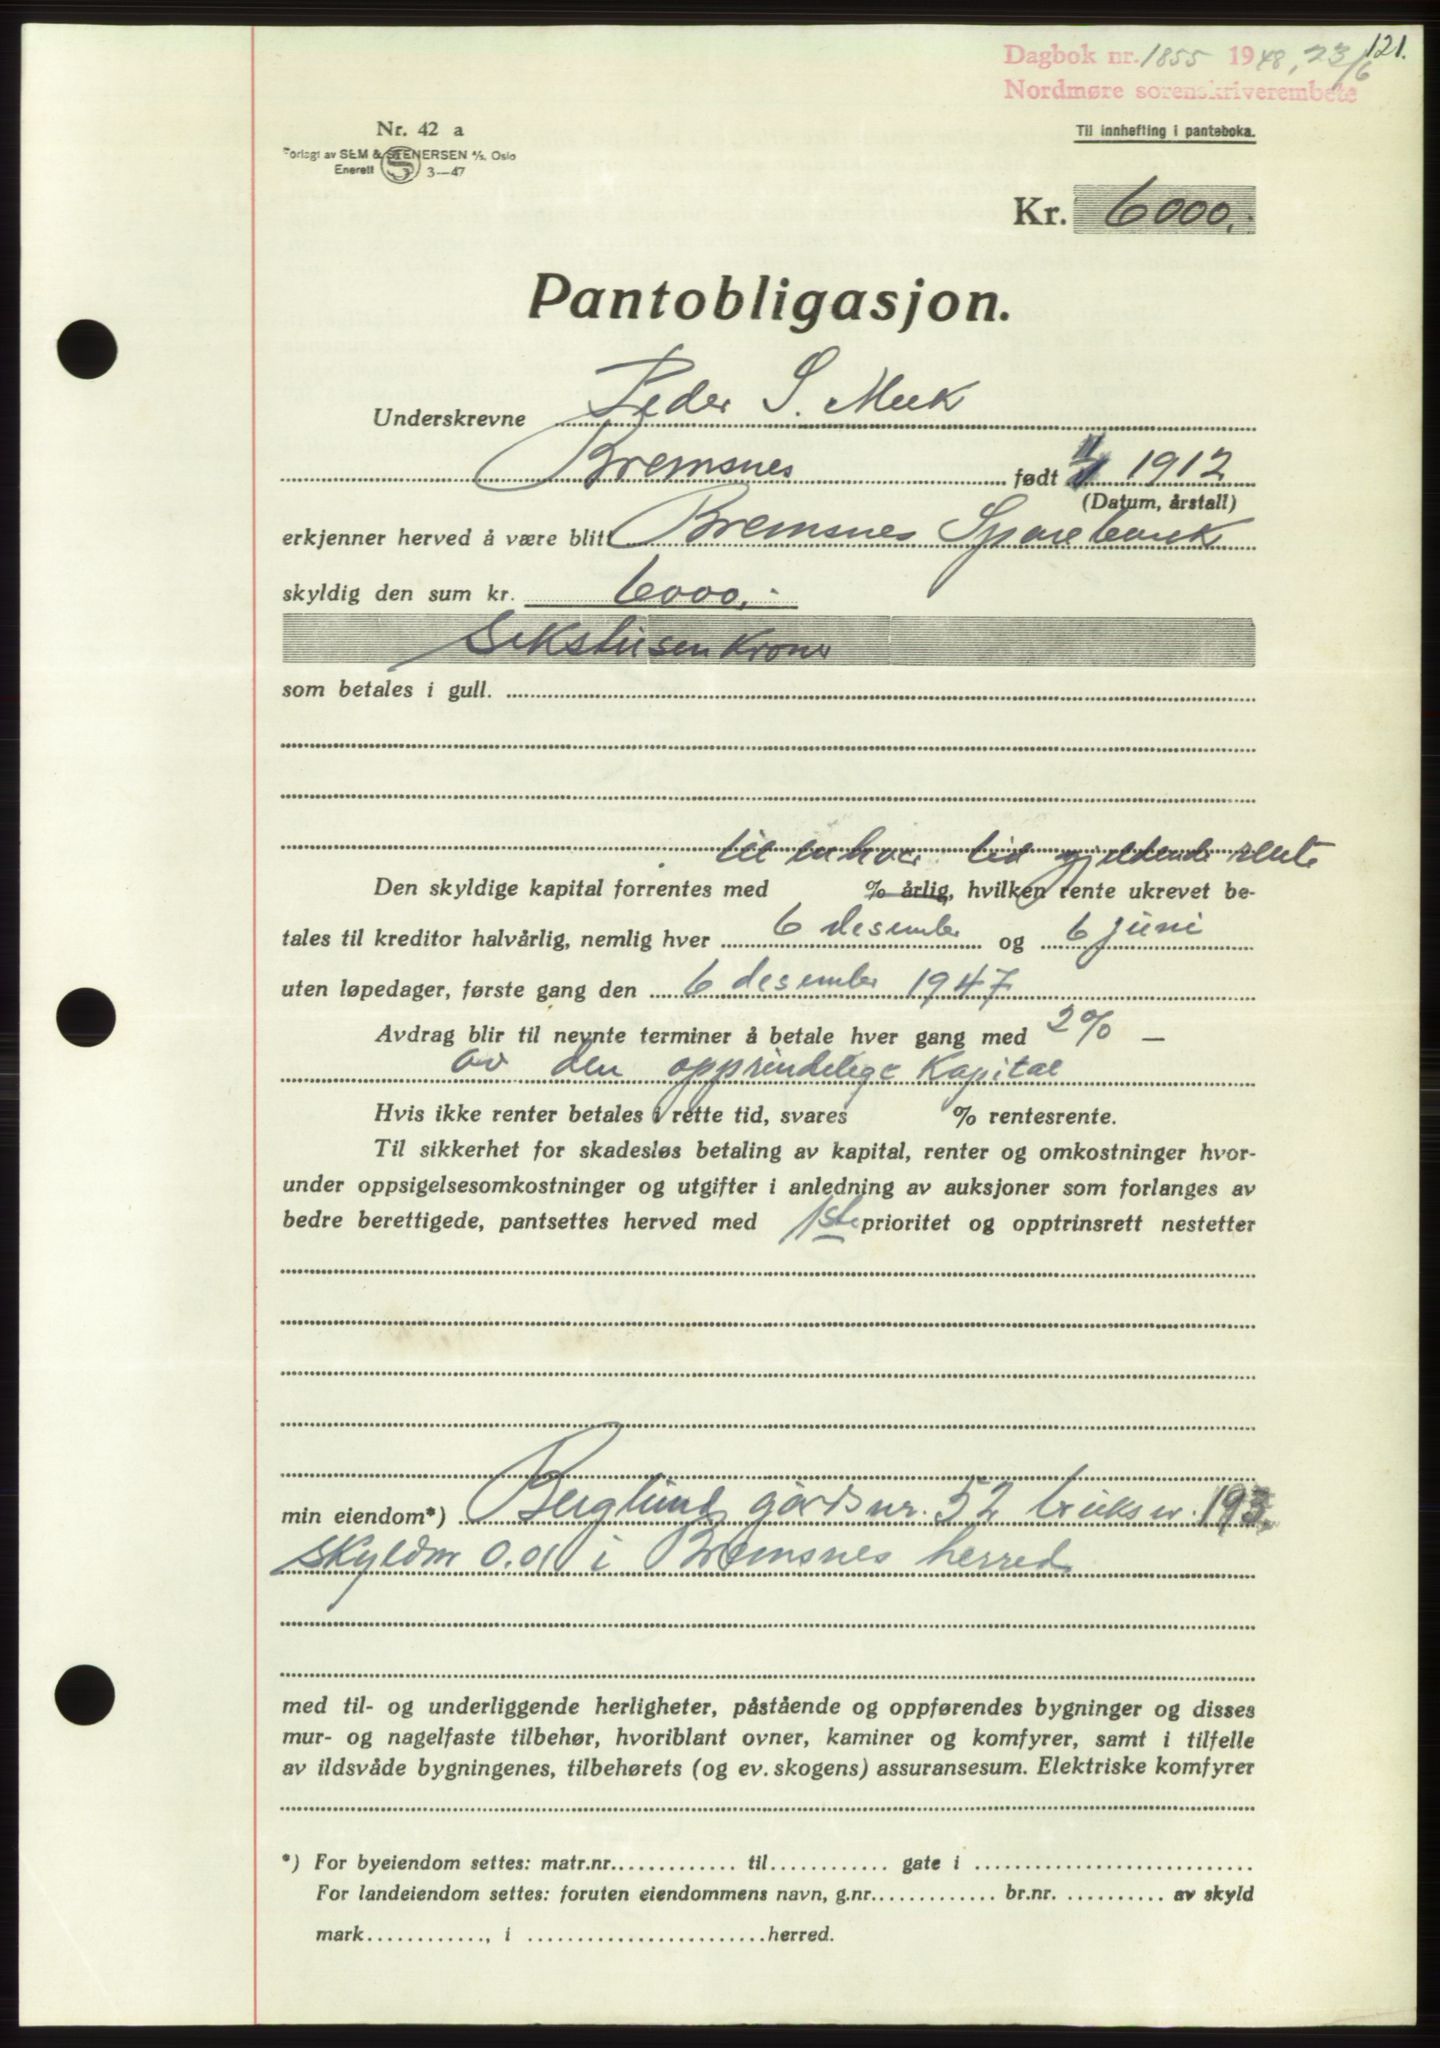 121.
Dagbok nr. 1855 1948, 23/6
Nordmøre sorenskriverembete
Nr. 42 a
Til innhefting i panteboka.
Forlagt av SEM & STENERSEN A/S, Oslo
Enerett 3—47
Kr. 6000.-
Pantobligasjon.
Underskrevne Peder S. Meek
Bremsnes født 1912
(Datum, årstall)
erkjenner herved å være blitt Bremsnes Sparebank
skyldig den sum kr. 6000.-
Sekstusen kroner
som betales i gull.
til enhver tid gjeldende rente
Den skyldige kapital forrentes med % årlig, hvilken rente ukrevet be-
tales til kreditor halvårlig, nemlig hver 6 desember og 6 juni
uten løpedager, første gang den 6 desember 1947
Avdrag blir til nevnte terminer å betale hver gang med 2% —
av den opprindelige kapital
Hvis ikke renter betales i rette tid, svares % rentesrente.
Til sikkerhet for skadesløs betaling av kapital, renter og omkostninger hvor-
under oppsigelsesomkostninger og utgifter i anledning av auksjoner som forlanges av
bedre berettigede, pantsettes herved med 1ste prioritet og opptrinsrett nestetter
min eiendom*) Berglund gårdsnr. 52 bruksnr. 193
skyldm 0.01 i Bremsnes herred
med til- og underliggende herligheter, påstående og oppførendes bygninger og disses
mur- og nagelfaste tilbehør, hvoriblant ovner, kaminer og komfyrer, samt i tilfelle
av ildsvåde bygningenes, tilbehørets (og ev. skogens) assuransesum. Elektriske komfyrer
*) For byeiendom settes: matr.nr............. til............ gate i ............................
For landeiendom settes: foruten eiendommens navn, g.nr............. br.nr. .......... av skyld
mark............, i ........................herred.